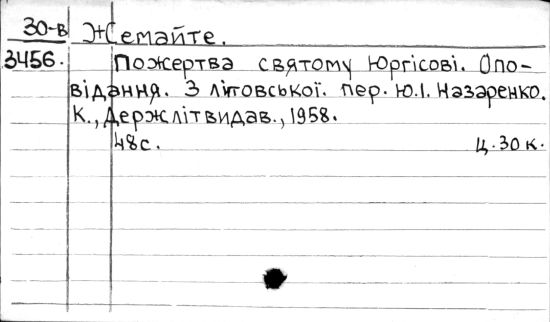 30-в Жемайте.
3456. Пожертва святому Юргісові. Опо-
відання. З літовської. Пер. Ю.І. Назаренко.
К., Держлітвидав., 1958.
48с. Ц. 30 к.